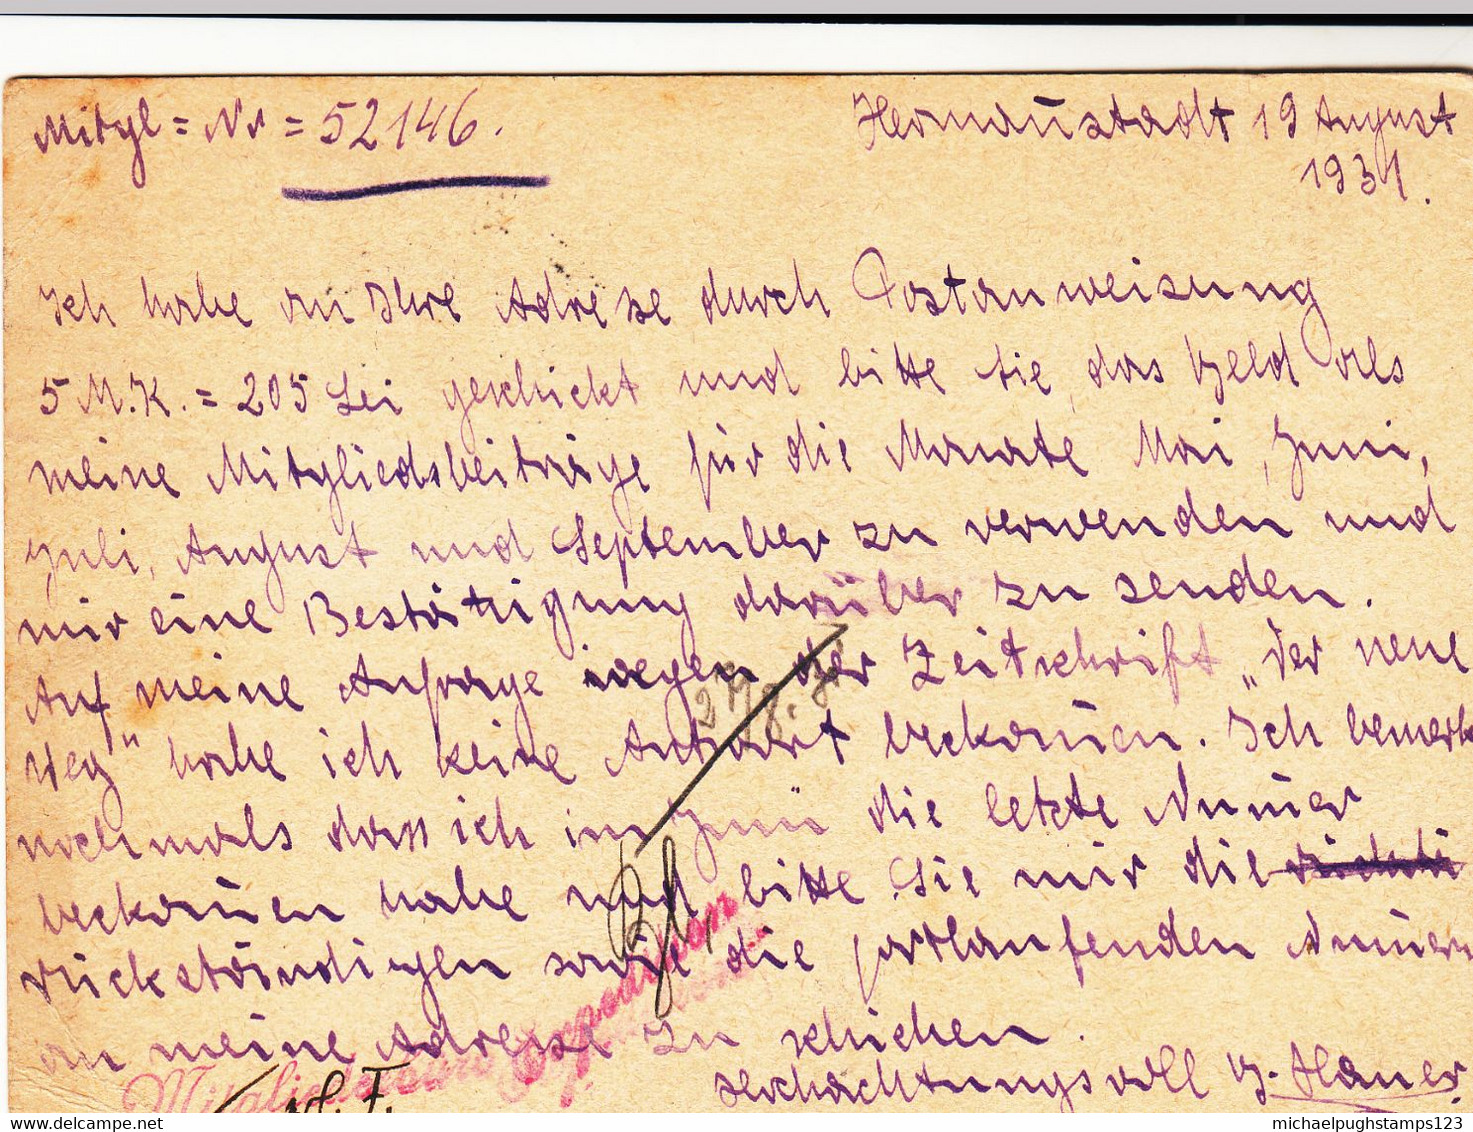 Mitgl = Nr = 52146.
Hermannstadt 19 August
1931.
Ich habe an Ihre Adresse durch Postanweisung
5 M.K. = 205 Lei geschickt und bitte Sie, das Geld als
meine Mitgliedsbeiträge für die Monate Mai, Juni,
Juli, August und September zu verwenden und
mir eine Bestätigung darüber zu senden.
Auf meine Anfrage wegen der Zeitschrift „Der neue
Weg" habe ich keine Antwort bekom̄en. Ich bemerke
nochmals dass ich im Juni die letzte Num̄er
bekom̄en habe und bitte Sie mir die
rückständigen sowie die fortlaufenden Num̄ern
an meine Adresse zu schicken.
Hochachtungsvoll G. Hauer
Expedition
delcampe.net
michaelpughstamps123